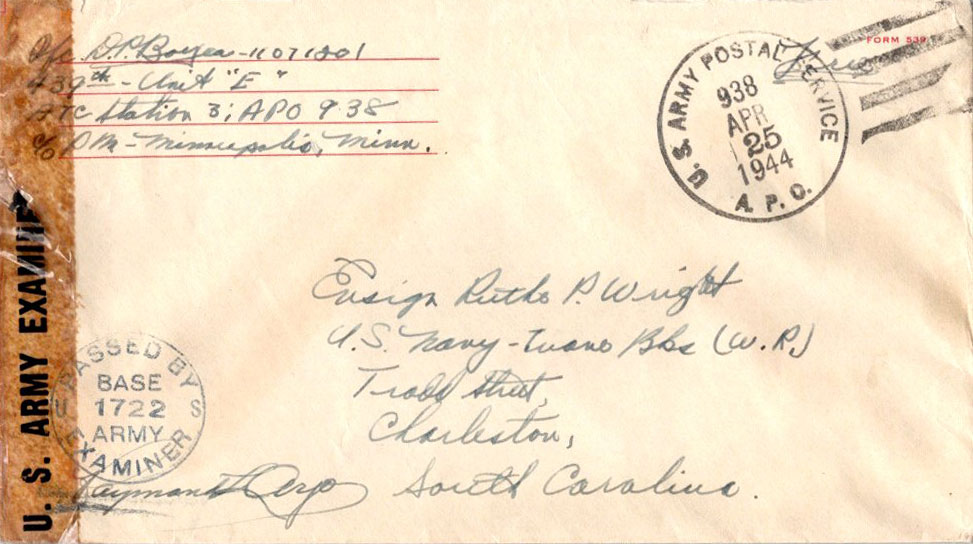 D.P. Boyea - 11071201
439th - Unit "E"
ATC Station 3; APO 938
c/o PM - Minneapolis, Minn.
FORM 539
Free
U.S. ARMY POSTAL SERVICE
938
APR
25
1944
A. P. O.
Ensign Ruthe P. Wright
U.S. Navy - Bks (W.R.)
Tradd Street,
Charleston,
South Carolina.
U. S. ARMY EXAMINER
PASSED BY
BASE
U 1722 S
ARMY
EXAMINER
Raymond